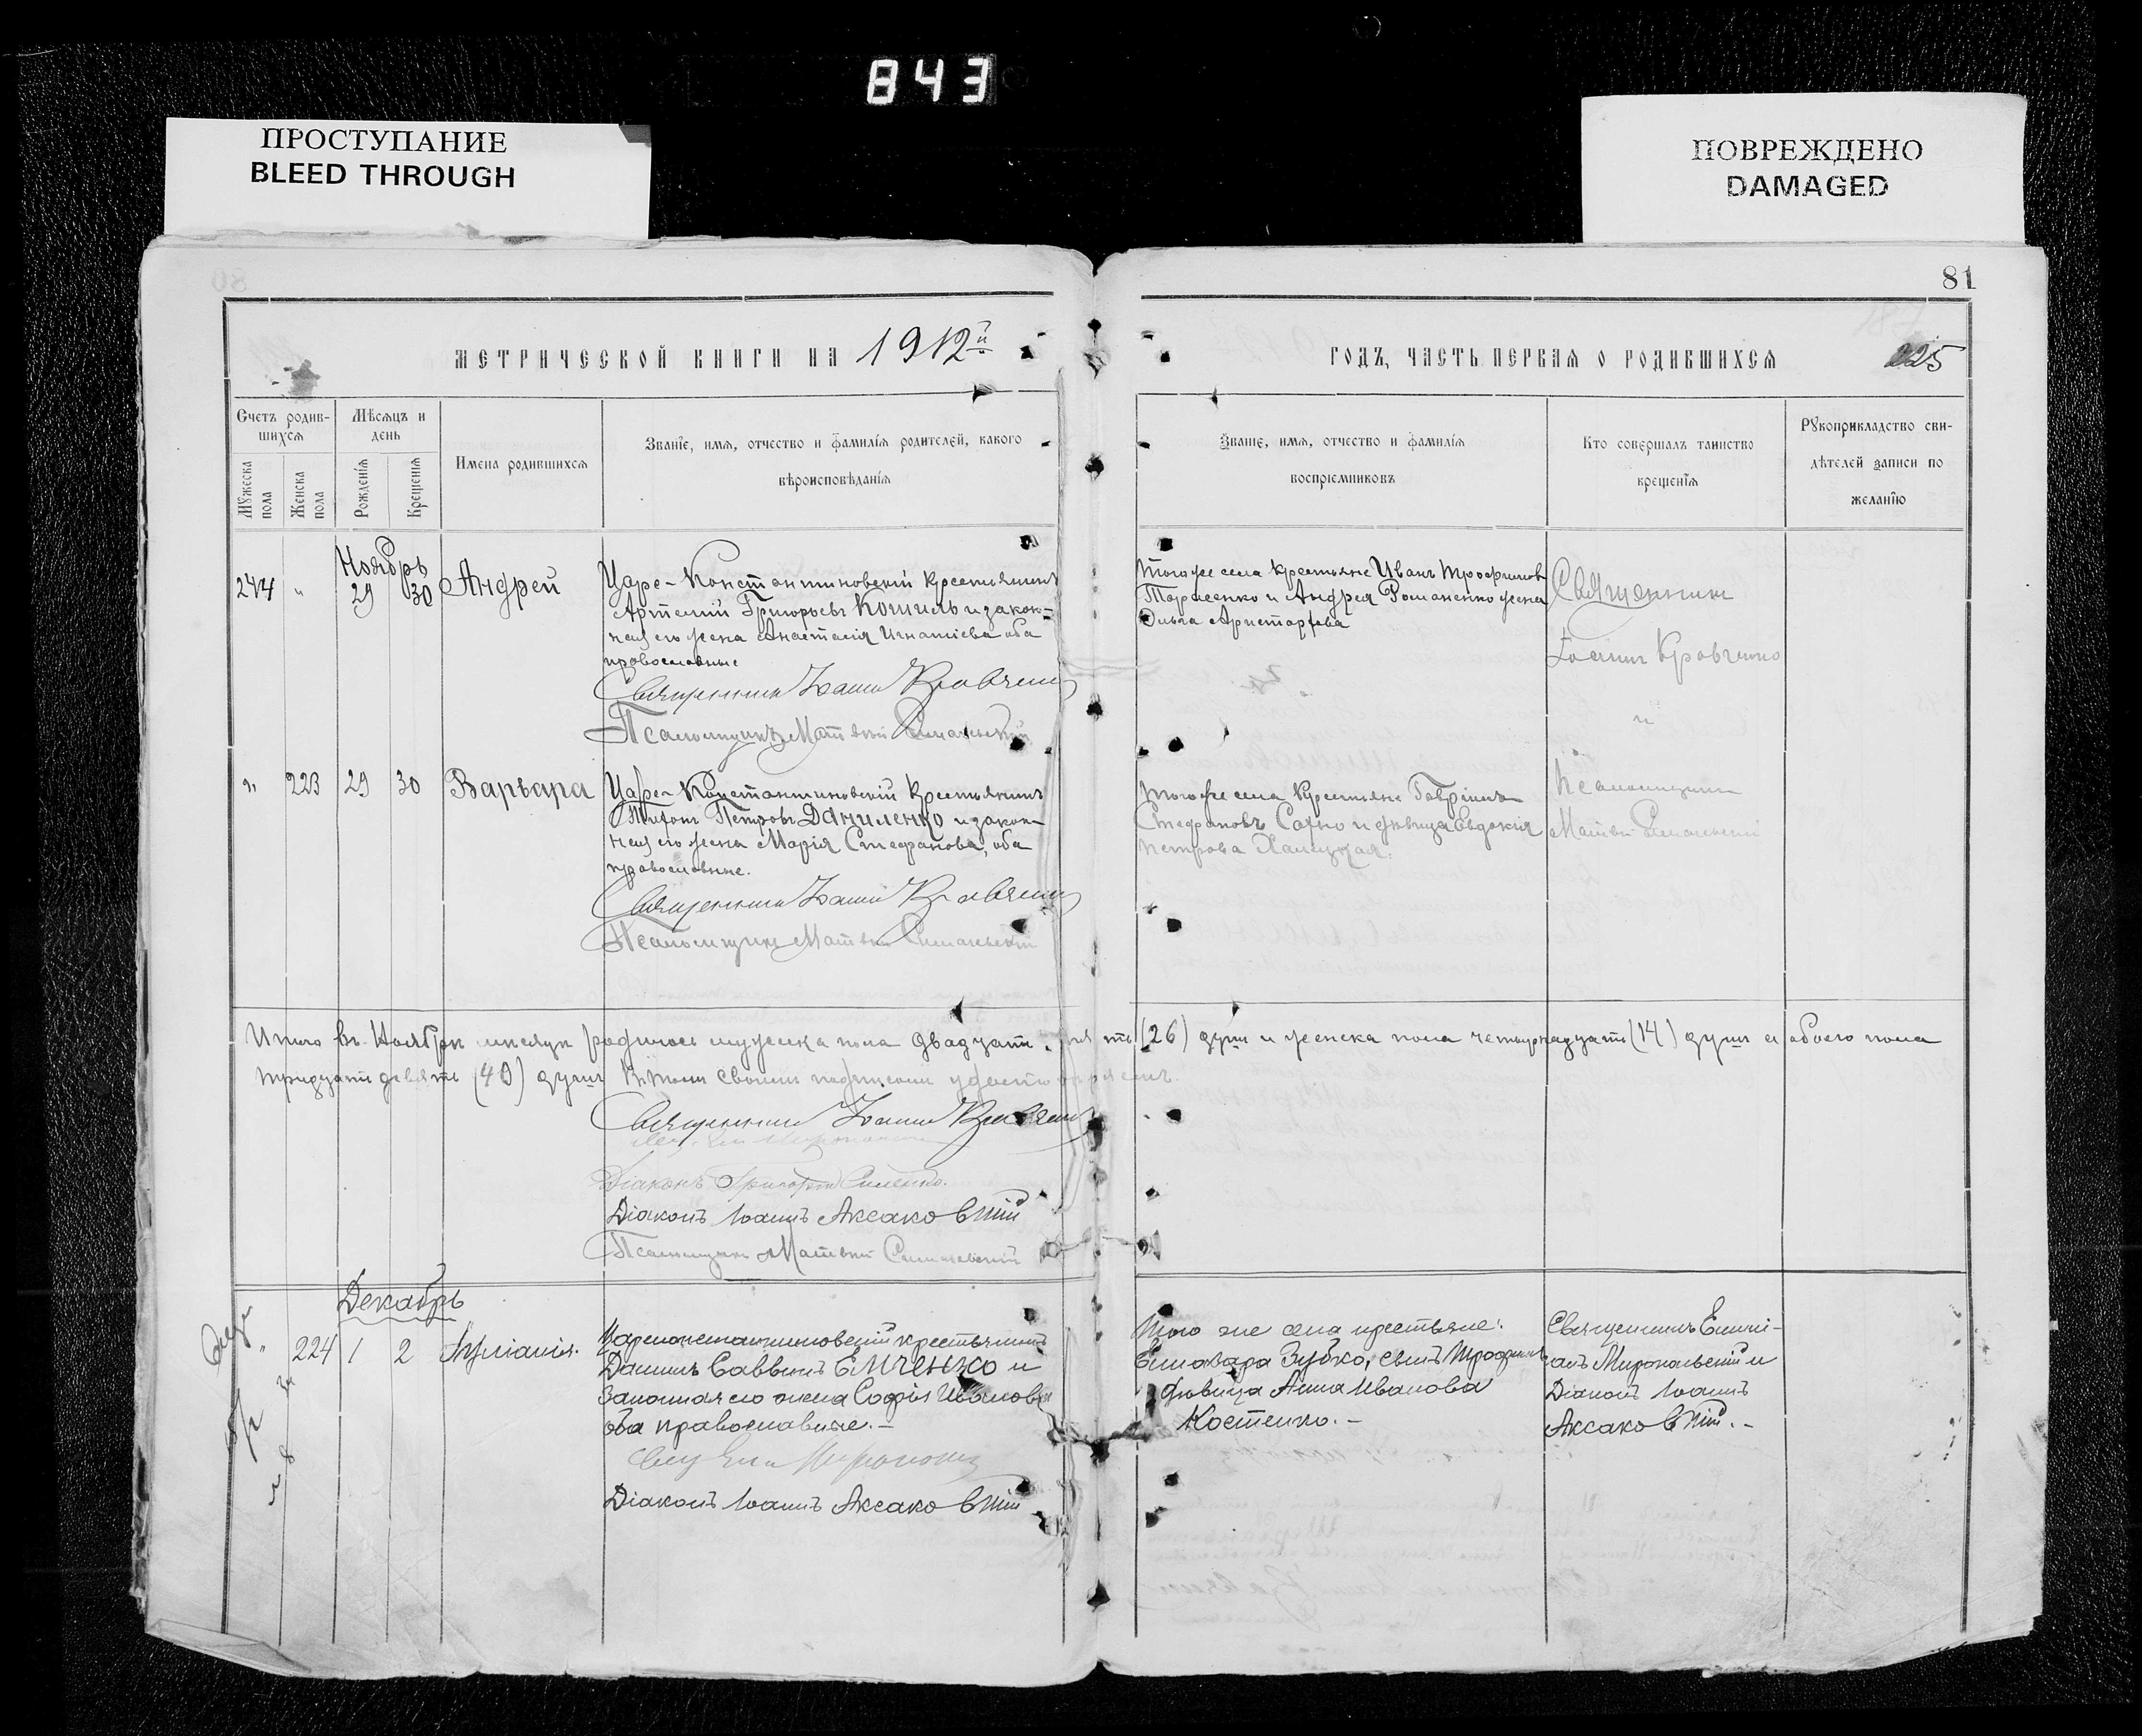 843
ПРОСТУПАНИЕ
BLEED THROUGH
ПОВРЕЖДЕНО
DAMAGED
81
МЕТРИЧЕСКОЙ КНИГИ НА 1912й
ГОДЪ, ЧАСТЬ ПЕРВАЯ О РОДИВШИХСЯ
225
Счетъ родив-
шихся
Мужеска пола
Женска пола
Мѣсяцъ и
день
Рожденія
Крещенія
Имена родившихся
Званіе, имя, отчество и фамилія родителей, какого
вѣроисповѣданія
Званіе, имя, отчество и фамилія
воспріемниковъ
Кто совершалъ таинство
крещенія
Рукоприкладство сви-
дѣтелей записи по
желанію
Ноябрь
244 " 29 30 Андрей
Царе-Константиновскій крестьянинъ
Артемій Григорьевъ Кошиль и закон-
ная его жена Анастасія Игнатіева оба
православные
Священникъ Іоаннъ Кравченко
Псаломщикъ Матвѣй
Того же села крестьяне Иванъ Трофимовъ
Тарасенко и Андрея Романенко жена
Ольга Аристархова
Священникъ
Іоаннъ Кравченко
и
Псаломщикъ
Матвѣй
" 223 29 30 Варвара
Царе-Константиновскій крестьянинъ
Тихонъ Петровъ Даниленко и закон-
ная его жена Марія Стефанова, оба
православные.
Священникъ Іоаннъ Кравченко
Псаломщикъ Матвѣй
Того же села крестьяне Гавріилъ
Стефановъ Сахно и дѣвица Евдокія
Петрова
Итого въ Ноябрѣ мѣсяцѣ родилось мужеска пола двадцать (26) душъ и женска пола четырнадцать (14) душъ а обоего пола
тридцать девять (40) душъ
Священникъ Іоаннъ Кравченко
Діаконъ Григорій
Діаконъ Іоаннъ Аксаковскій
Псаломщикъ Матвѣй
Декабрь
" 224 1 2 Іуліанія.
Царе-константиновскій крестьянинъ
Даніилъ Саввинъ Емченко и
законная его жена Софія Иванова
оба православные.-
Діаконъ Іоаннъ Аксаковскій
Того же села крестьяне:
Елиазара Зубко, сынъ Трофимъ
дѣвица Анна Иванова
Костенко.-
Священникъ
и
Діаконъ Іоаннъ
Аксаковскій.-